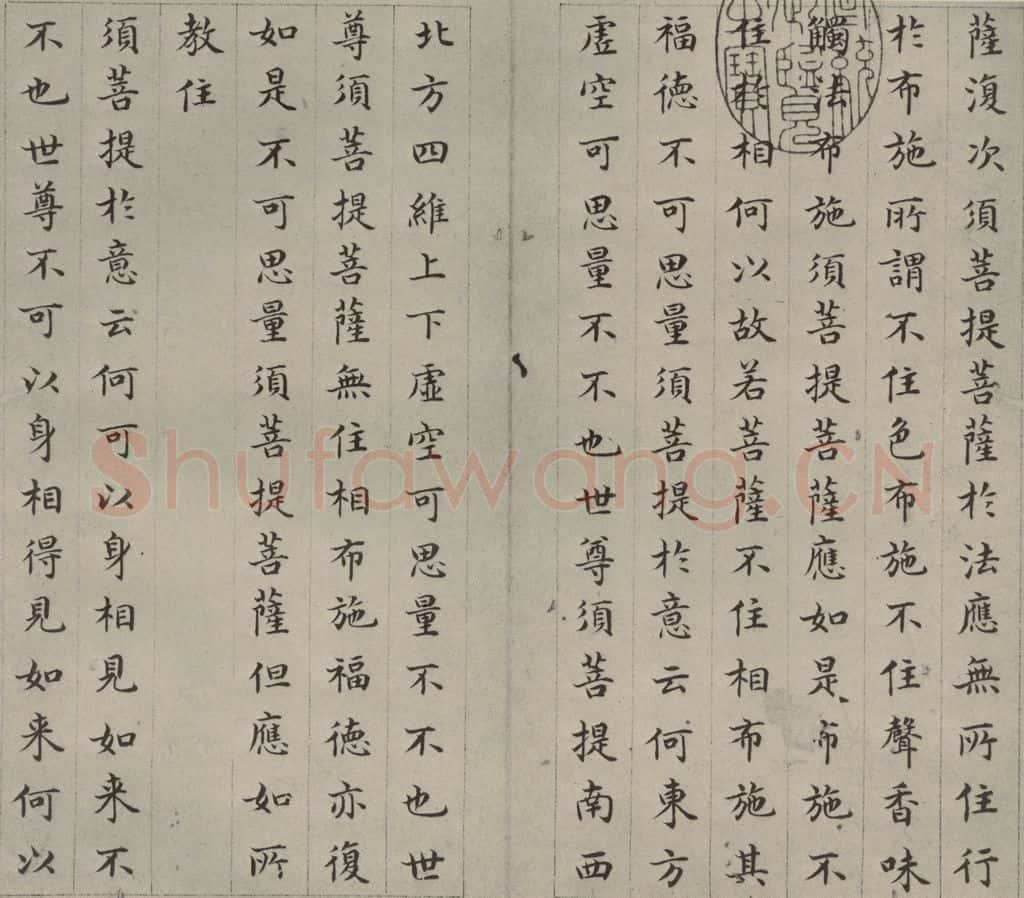 薩復次須菩提菩薩於法應無所住行
於布施所謂不住色布施不住聲香味
觸法布施須菩提菩薩應如是布施不
住於相何以故若菩薩不住相布施其
福德不可思量須菩提於意云何東方
虛空可思量不不也世尊須菩提南西
北方四維上下虛空可思量不不也世
尊須菩提菩薩無住相布施福德亦復
如是不可思量須菩提菩薩但應如所
教住
須菩提於意云何可以身相見如来不
不也世尊不可以身相得見如来何以
Shufawang.CN